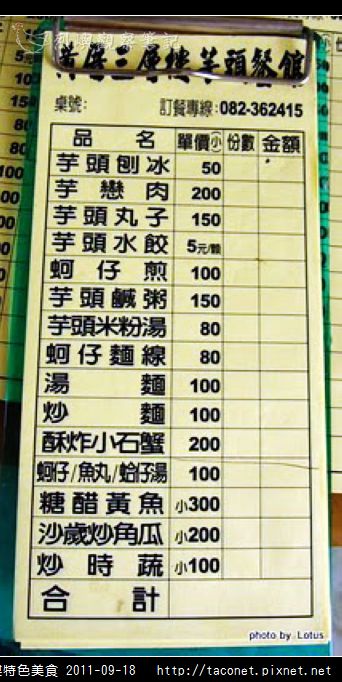 三層樓芋頭餐館
桌號: 訂餐專線:082-362415
品名 單價(小) 份數 金額
芋頭刨冰 50
芋戀肉 200
芋頭丸子 150
芋頭水餃 5元/顆
蚵仔煎 100
芋頭鹹粥 150
芋頭米粉湯 80
蚵仔麵線 80
湯麵 100
炒麵 100
酥炸小石蟹 200
蚵仔/魚丸/蛤仔湯 100
糖醋黃魚 小300
沙歲炒角瓜 小200
炒時蔬 小100
合計
photo by Lotus
特色美食 2011-09-18 http://taconet.pixnet.net